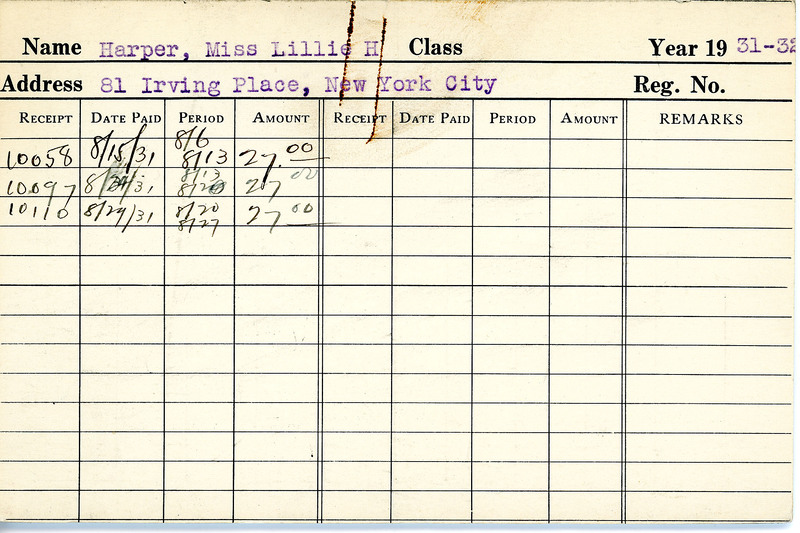 Name Harper, Miss Lillie H Class Year 19 31-32
Address 81 Irving Place, New York City Reg. No.
RECEIPT DATE PAID PERIOD AMOUNT RECEIPT DATE PAID PERIOD AMOUNT REMARKS
8/6
10058 8/15/31 8/13 27.00
8/13
10097 8/24/31 8/20 27 00
10110 8/29/31 8/20 27 00
8/27